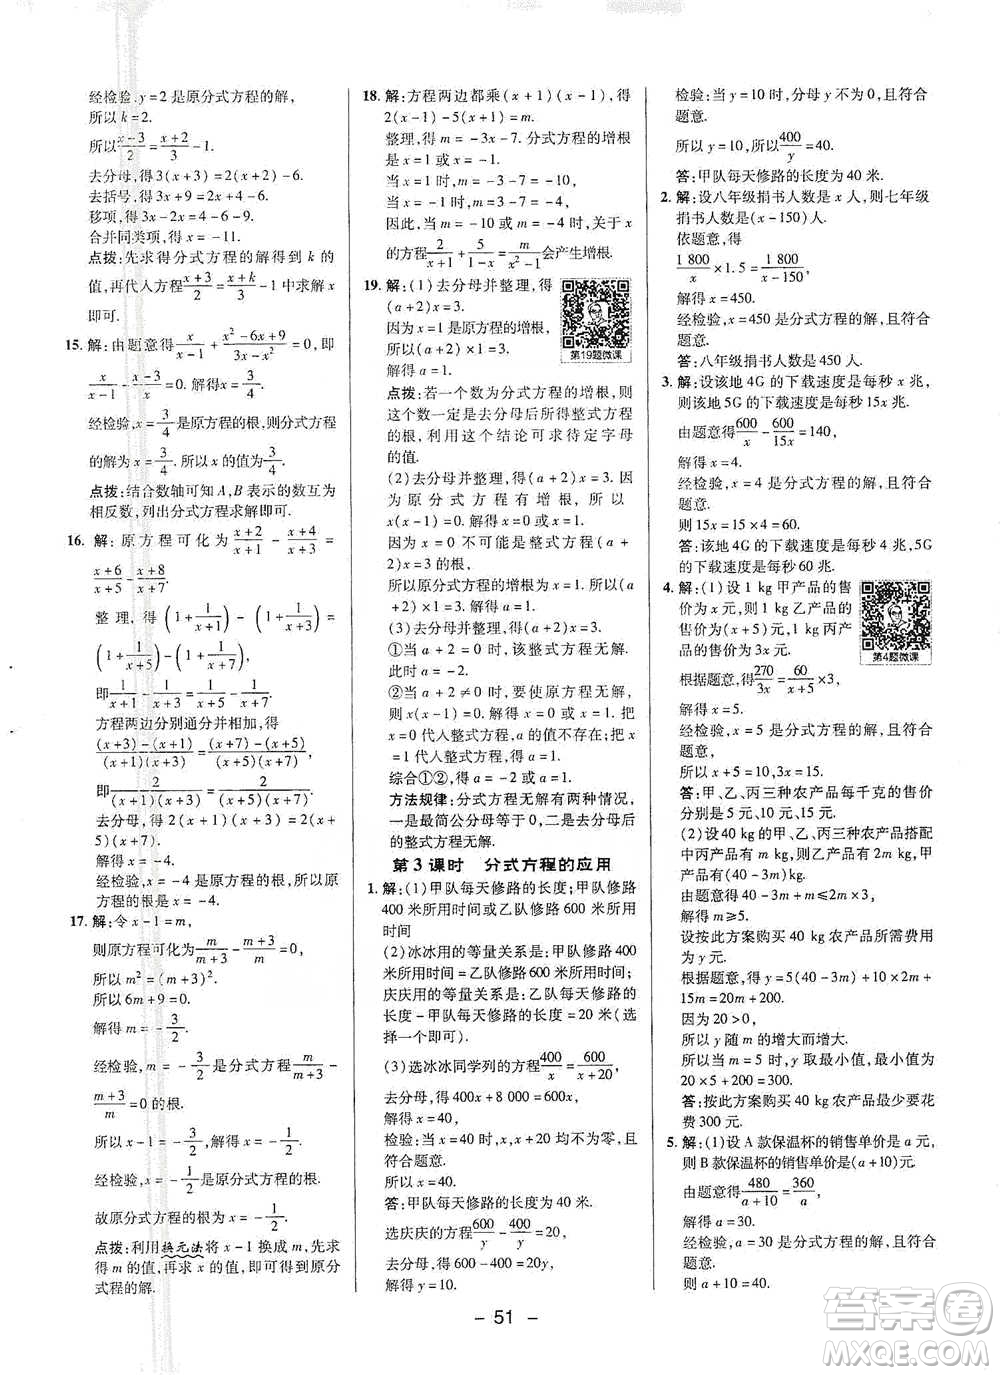 经检验,y=2是原分式方程的解,
所以k=2.
所以(x-3)/2=(x+2)/3-1.
去分母,得3(x+3)=2(x+2)-6.
去括号,得3x+9=2x+4-6.
移项,得3x-2x=4-6-9.
合并同类项,得x=-11.
点拨:先求得分式方程的解得到k的
值,再代入方程(x+3)/2=(x+k)/3-1中求解
即可.
15.解:由题意得x/(x-1)+(x²-6x+9)/(3x-x²)=0,即
x/(x-1)-(x-3)/x=0.解得x=3/4.
经检验,x=3/4是原方程的根,则分式方程
的解为x=3/4.所以x的值为3/4.
点拨:结合数轴可知A,B表示的数互为
相反数,列出分式方程求解即可.
16.解:原方程可化为(x+2)/(x+1)-(x+4)/(x+3)=
(x+6)/(x+5)-(x+8)/(x+7).
整理,得(1+1/(x+1))-(1+1/(x+3))=
(1+1/(x+5))-(1+1/(x+7)),
即1/(x+1)-1/(x+3)=1/(x+5)-1/(x+7).
方程两边分别通分并相加,得
((x+3)-(x+1))/((x+1)(x+3))=((x+7)-(x+5))/((x+5)(x+7)),
即2/((x+1)(x+3))=2/((x+5)(x+7)).
去分母,得2(x+1)(x+3)=2(x+
5)(x+7).
解得x=-4.
经检验,x=-4是原方程的根,则分式
方程的根为x=-4.
17.解:令x-1=m,
则原方程可化为m/(m+3)-(m+3)/m=0,
所以m²=(m+3)².
所以6m+9=0.
解得m=-3/2.
经检验,m=-3/2是分式方程m/(m+3)-
(m+3)/m=0的根.
所以x-1=-3/2,解得x=-1/2.
经检验,x=-1/2是原分式方程的根.
故原分式方程的根为x=-1/2.
点拨:利用换元法将x-1换成m,先求
得m的值,再求x的值,即可得到原分
式程的解.
18.解:方程两边都乘(x+1)(x-1),得
2(x-1)-5(x+1)=m.
整理,得m=-3x-7.分式方程的增根
是x=1或x=-1.
当x=1时,m=-3-7=-10;
当x=-1时,m=3-7=-4.
因此,当m=-10或m=-4时,关于x
的方程2/(x+1)+5/(1-x)=m/(x²-1)会产生增根.
19.解:(1)去分母并整理,得
(a+2)x=3.
因为x=1是原方程的增根,
所以(a+2)×1=3.
解得a=1.
第19题微课
点拨:若一个数为分式方程的增根,则
这个数一定是去分母后所得整式方程
的根,利用这个结论可求待定字母
的值.
(2)去分母并整理,得(a+2)x=3.
因为原分式方程有增根,所以
x(x-1)=0.解得x=0或x=1.
因为x=0不可能是整式方程(a+
2)x=3的根,
所以原分式方程的增根为x=1.
所以(a+2)×1=3.所以a=1.
(3)去分母并整理,得(a+2)x=3.
①当a+2=0时,该整式方程无解.
此时a=-2.
②当a+2≠0时,要使原方程无解,
则x(x-1)=0,得x=0或x=1.把
x=0代入整式方程,a的值不存在;把
x=1代入整式方程,得a=1.
综合①②,得a=-2或a=1.
方法规律:分式方程无解有两种情况,
一是最简公分母等于0,二是去分母后
的整式方程无解.
第3课时 分式方程的应用
1.解:(1)甲队每天修路的长度;甲队修路
400米所用时间或乙队修路600米所用
时间
(2)冰冰用的等量关系是:甲队修路400
米所用时间=乙队修路600米所用时间,
庆庆用的等量关系是:乙队每天修路的
长度-甲队每天修路的长度=20米(选
择一个即可).
(3)选冰冰同学列的方程400/x=600/(x+20).
去分母,得400x+8 000=600x,
解得x=40.
检验:当x=40时,分母均不为零,且符
合题意.
所以x=40.
答:甲队每天修路的长度为40米.
选庆庆的方程600/y-400/y=20.
去分母,得600-400=20y,
解得y=10.
检验:当y=10时,分母y不为0,且符合
题意.
所以y=10,所以400/y=40.
答:甲队每天修路的长度为40米.
2.解:设八年级捐书人数是x人,则七年级
捐书人数是(x-150)人.
依题意,得
1 800/x×1.5=1 800/(x-150),
解得x=450.
经检验,x=450是分式方程的解,且符合
题意.
答:八年级捐书人数是450人.
3.解:设该地4G的下载速度是每秒x兆,
则该地5G的下载速度是每秒15x兆.
由题意得600/x-600/15x=140,
解得x=4.
经检验,x=4是分式方程的解,且符合
题意.
则15x=15×4=60.
答:该地4G的下载速度是每秒4兆,5G
的下载速度是每秒60兆.
4.解:(1)设1 kg甲产品的售
价为x元,则1 kg乙产品的
售价为(x+5)元,1 kg丙产
品的售价为3x元.
第4题微课
根据题意,得270/3x=60/(x+5)×3,
解得x=5.
经检验,x=5是分式方程的解,且符合
题意.
所以x+5=10,3x=15.
答:甲、乙、丙三种农产品每千克的售价
分别是5元、10元、15元.
(2)设40 kg的甲、乙、丙三种农产品搭
配中丙产品有m kg,则乙产品有2m kg,
甲产品有(40-3m)kg.
由题意得40-3m+m≤2m×3,
解得m≥5.
设按此方案购买40 kg农产品所需费用
为y元.
根据题意,得y=5(40-3m)+20m+
15m=20m+200.
因为20>0,
所以y随m的增大而增大.
所以当m=5时,y取最小值,最小值为
20×5+200=300.
答:按此方案购买40 kg农产品最少要花
费300元.
5.解:(1)设A款保温杯的销售单价是a元,
则B款保温杯的销售单价是(a+10)元.
由题意得480/(a+10)=360/a,
解得a=30.
经检验,a=30是分式方程的解,且符合
题意.
则a+10=40.
- 51 -
答案圈
MXQE.COM